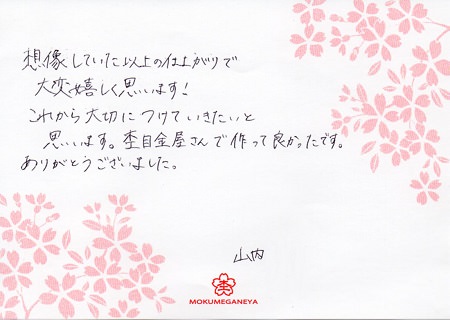 想像していた以上の仕上がりで
大変嬉しく思います！
これから大切につけていきたいと
思います。杢目金屋さんで作って良かったです。
ありがとうございました。
山内
MOKUMEGANEYA